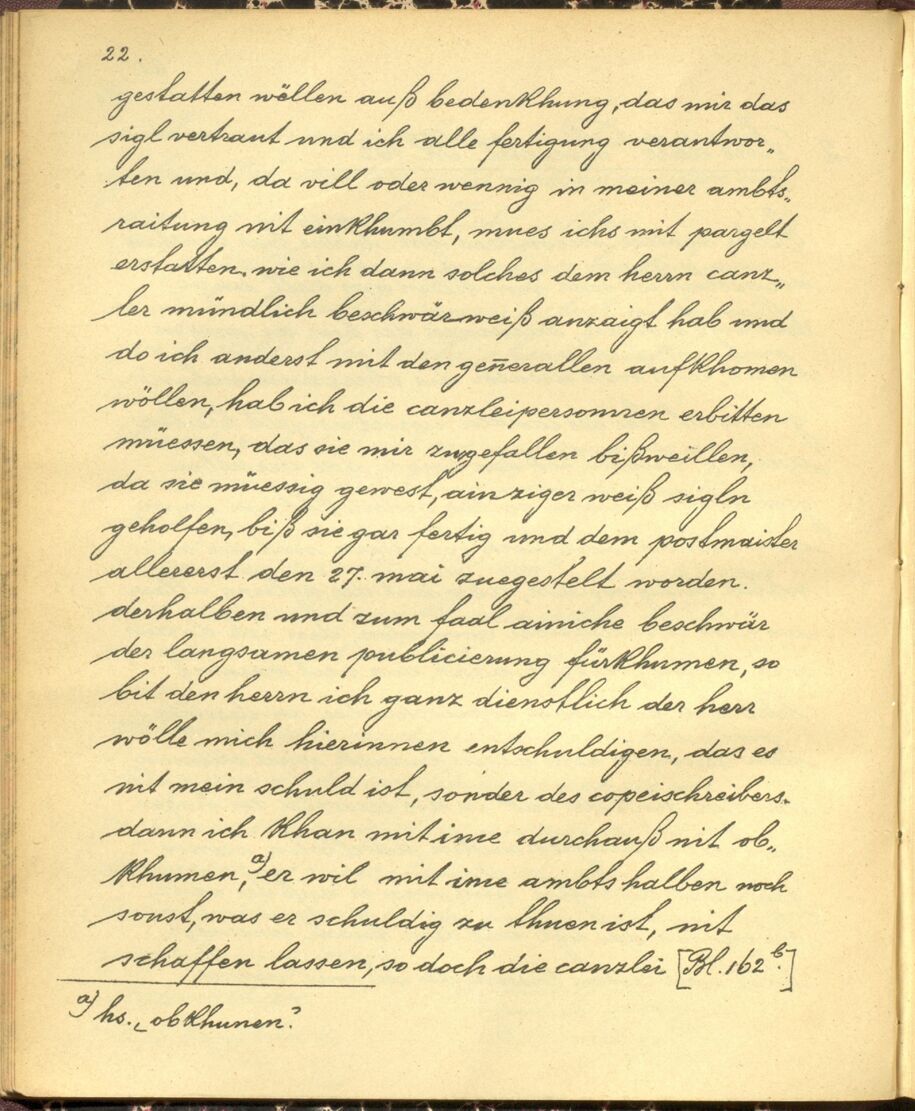 22.
gestatten wöllen auß bedenkhung, das mir das
sigl vertraut und ich alle fertigung verantwor„
ten und, da vill oder wennig in meiner ambts„
raitung nit einkhumbt, mues ichs mit pargelt
erstatten, wie ich dann solches dem herrn canz„
ler mündlich beschwärweiß anzaigt hab und
do ich anderst mit den gen̄erallen aufkhomen
wöllen, hab ich die canzleipersonnen erbitten
müessen, das sie mir zugefallen bißweillen,
da sie müessig gewest, ainziger weiß sigln
geholfen, biß sie gar fertig und dem postmaister
allererst den 27. mai zuegestelt worden.
derhalben und zum faal ainiche beschwär
der langsamen publicierung fürkhumen, so
bit den herrn ich ganz dienstlich der herr
wölle mich hierinnen entschuldigen, das es
nit mein schuld ist, sonder des copeischreibers.
dann ich khan mit ime durchauß nit ob„
khumen,a) er wil mit ime ambts halben noch
sonst, was er schuldig zu thuen ist, nit
schaffen lassen, so doch die canzlei [Bl. 162b.]
a) hs. „obkhunen“.